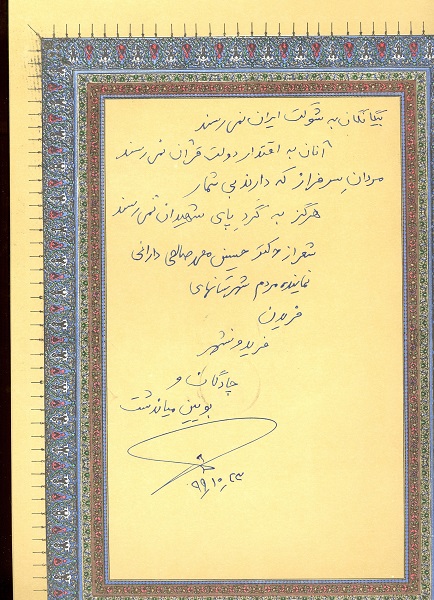 بیگانگان به شوکت ایران نمی رسند
آنان به اقتدار دولت قرآن نمی رسند
مردان سرفراز که دارند بی شمار
هرگز به گردِ پای شهیدان نمی رسند
شعر از دکتر حسین محمد صالحی دارانی
نماینده مردم شهرستانهای
فریدن
فریدونشهر
چادگان و
بویین میاندشت
۹۹٫۱۰٫۲۳